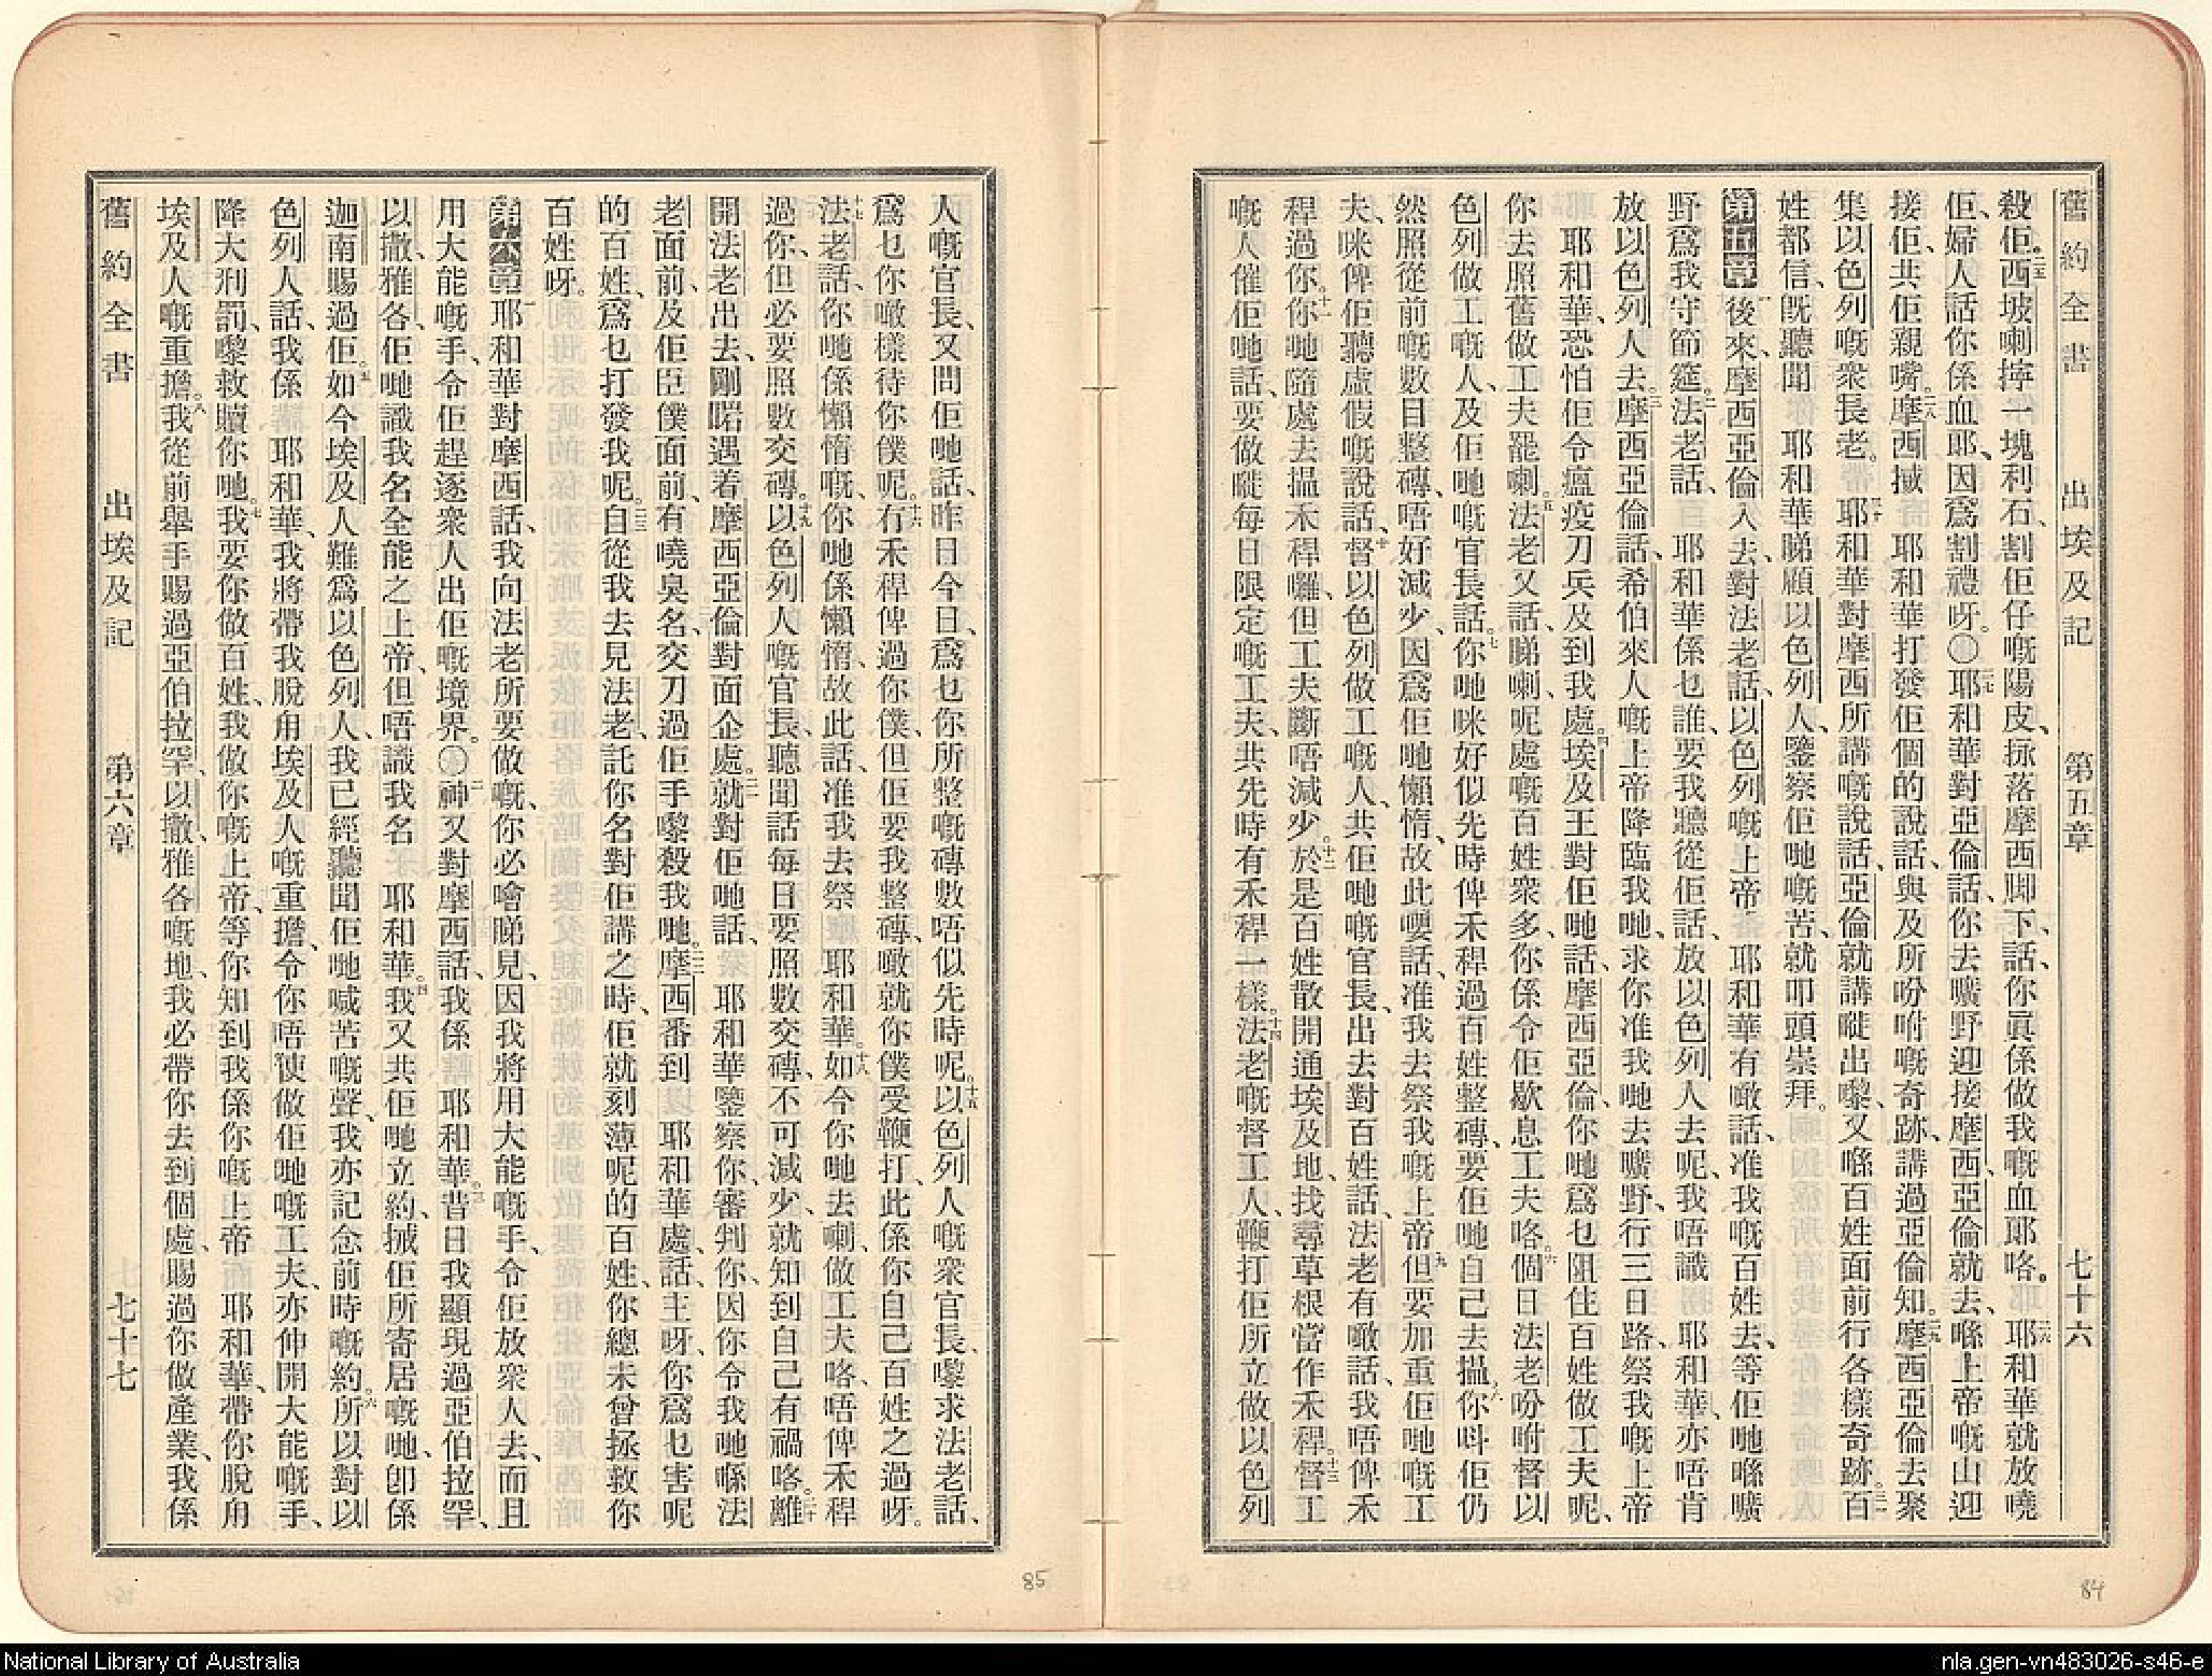 舊約全書 出埃及記 第五章 七十六
殺佢。二五西坡喇擰一塊利石、割佢仔嘅陽皮、揼落摩西脚下、話、你眞係做我嘅血耶咯。二六耶和華就放嘵
佢、婦人話你係血郎、因爲割禮呀。〇二七耶和華對亞倫話、你去曠野迎接摩西、亞倫就去、喺上帝嘅山迎
接佢、共佢親嘴。二八摩西搣 耶和華打發佢個的說話、與及所吩咐嘅奇跡、講過亞倫知。二九摩西亞倫去聚
集以色列嘅衆長老。三十耶和華對摩西所講嘅說話、亞倫就講嘥出嚟、又喺百姓面前行各樣奇跡。三一百
姓都信、旣聽聞 耶和華睇顧以色列人、鑒察佢哋嘅苦、就叩頭崇拜。
第五章 一後來、摩西亞倫入去、對法老話、以色列嘅上帝 耶和華有噉話、准我嘅百姓去、等佢哋喺曠
野爲我守節筵。二法老話、耶和華係乜誰、要我聽從佢話、放以色列人去呢、我唔識 耶和華、亦唔肯
放以色列人去。三摩西亞倫話、希伯來人嘅上帝降臨我哋、求你准我哋去曠野、行三日路、祭我嘅上帝
耶和華、恐怕佢令瘟疫刀兵及到我處。四埃及王對佢哋話、摩西亞倫、你哋爲乜阻住百姓做工夫呢、
你去照舊做工夫罷喇。五法老又話、睇喇、呢處嘅百姓衆多、你係令佢歇息工夫咯。六個日法老吩咐督以
色列做工嘅人、及佢哋嘅官長話。七你哋咪好似先時俾禾稈過百姓整磚、要佢哋自己去搵、八你呌佢仍
然照從前嘅數目整磚、唔好減少、因爲佢哋懶惰、故此嘤話、准我去祭我嘅上帝、九但要加重佢哋嘅工
夫、咪俾佢聽虛假嘅說話、十督以色列做工嘅人、共佢哋嘅官長、出去對百姓話、法老有噉話、我唔俾禾
稈過你。十一你哋隨處去搵禾稈囉、但工夫斷唔減少。十二於是百姓散開通埃及地、找尋草根當作禾稈。十三督工
嘅人催佢哋話、要做嘥每日限定嘅工夫、共先時有禾稈一樣。十四法老嘅督工人、鞭打佢所立做以色列
人嘅官長、又問佢哋話、昨日今日、爲乜你所整嘅磚數唔似先時呢。十五以色列人嘅衆官長、嚟求法老話、
爲乜你噉樣待你僕呢。十六冇禾稈俾過你僕、但佢要我整磚、噉就你僕受鞭打、此係你自己百姓之過呀。
十七法老話、你哋係懶惰嘅、你哋係懶惰、故此話、准我去祭 耶和華。十八如今你哋去喇、做工夫咯、唔俾禾稈
過你、但必要照數交磚。十九以色列人嘅官長、聽聞話每日要照數交磚、不可減少、就知到自己有禍咯。二十離
開法老出去、剛啱遇着摩西亞倫對面企處。二一就對佢哋話、耶和華鑒察你、審判你、因你令我哋喺法
老面前、及佢臣僕面前、有嘵臭名、交刀過佢手嚟殺我哋。二二摩西番到 耶和華處話、主呀、你爲乜害呢
的百姓、爲乜打發我呢。二三自從我去見法老、託你名對佢講之時、佢就刻薄呢的百姓、你總未曾拯救你
百姓呀。
第六章 一耶和華對摩西話、我向法老所要做嘅、你必噲睇見、因我將用大能嘅手、令佢放衆人去、而且
用大能嘅手、令佢趕逐衆人出佢嘅境界。〇二神又對摩西話、我係 耶和華。三昔日我顯現過亞伯拉罕、
以撒、雅各、佢哋識我名全能之上帝、但唔識我名 耶和華。四我又共佢哋立約、搣佢所寄居嘅地、卽係
迦南賜過佢。五如今埃及人難爲以色列人、我已經聽聞佢哋喊苦嘅聲、我亦記念前時嘅約。六所以對以
色列人話、我係 耶和華、我將帶我脫甪埃及人嘅重擔、令你唔使做佢哋嘅工夫、亦伸開大能嘅手、
降大刑罰、嚟救贖你哋。七我要你做百姓、我做你嘅上帝、等你知到我係你嘅上帝 耶和華、帶你脫甪
埃及人嘅重擔。八我從前舉手賜過亞伯拉罕、以撒、雅各嘅地、我必帶你去到個處、賜過你做產業、我係
舊約全書 出埃及記 第六章 七十七
84
85
National Library of Australia
nla.gen-vn483026-s46-e